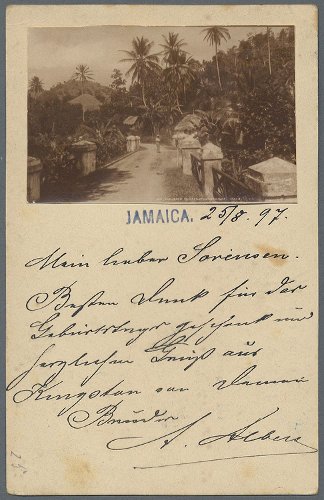 JAMAICA. 25/8. 97.
Mein lieber Sörensen.
Besten Dank für das
Geburtstagsgeschenk und
herzlichen Gruß aus
Kingston von Deinem
Bruder
A. Albers